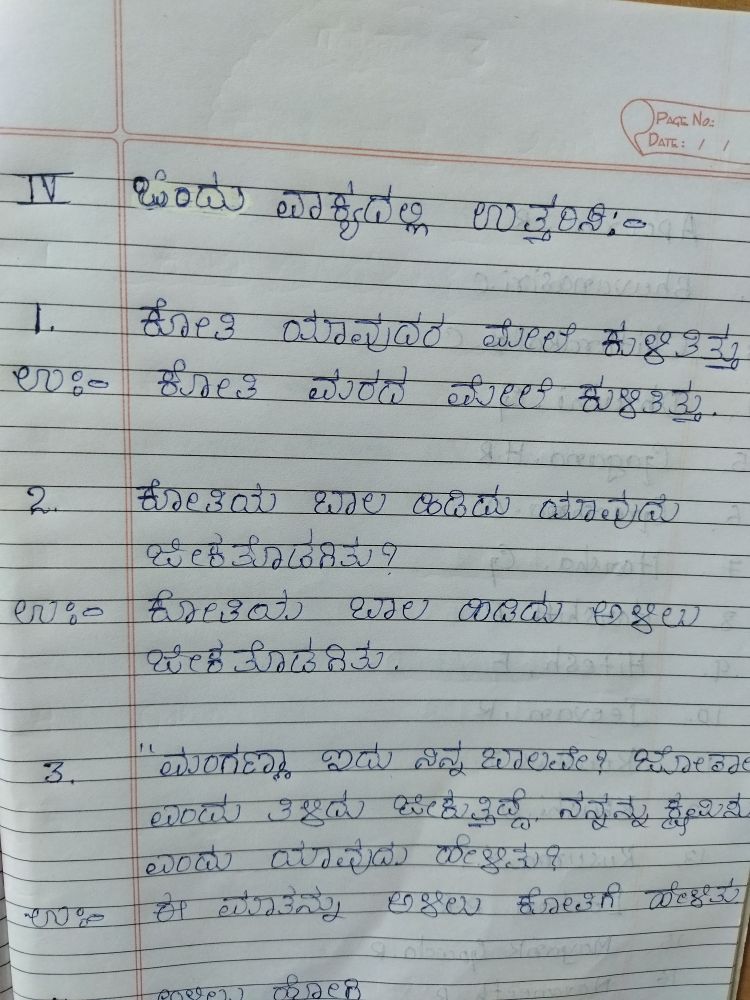 PAGE NO:
DATE: / /
IV ಒಂದು ವಾಕ್ಯದಲ್ಲಿ ಉತ್ತರಿಸಿ:-
1. ಕೋತಿ ಯಾವುದರ ಮೇಲೆ ಕುಳಿತಿತ್ತು
ಉ:- ಕೋತಿ ಮರದ ಮೇಲೆ ಕುಳಿತಿತ್ತು.
2. ಕೋತಿಯ ಬಾಲ ಹಿಡಿದು ಯಾವುದು
ಜೀಕತೊಡಗಿತು?
ಉ:- ಕೋತಿಯ ಬಾಲ ಹಿಡಿದು ಅಳಿಲು
ಜೀಕತೊಡಗಿತು.
3. "ಮಂಗಣ್ಣಾ ಇದು ನಿನ್ನ ಬಾಲವೇ?
ಎಂದು ತಿಳಿದು ಜೀಕುತ್ತಿದ್ದೆ. ನನ್ನನ್ನು ಕ್ಷಮಿಸು
ಎಂದು ಯಾವುದು ಹೇಳಿತು?
ಉ:- ಈ ಮಾತನ್ನು ಅಳಿಲು ಕೋತಿಗೆ ಹೇಳಿತು